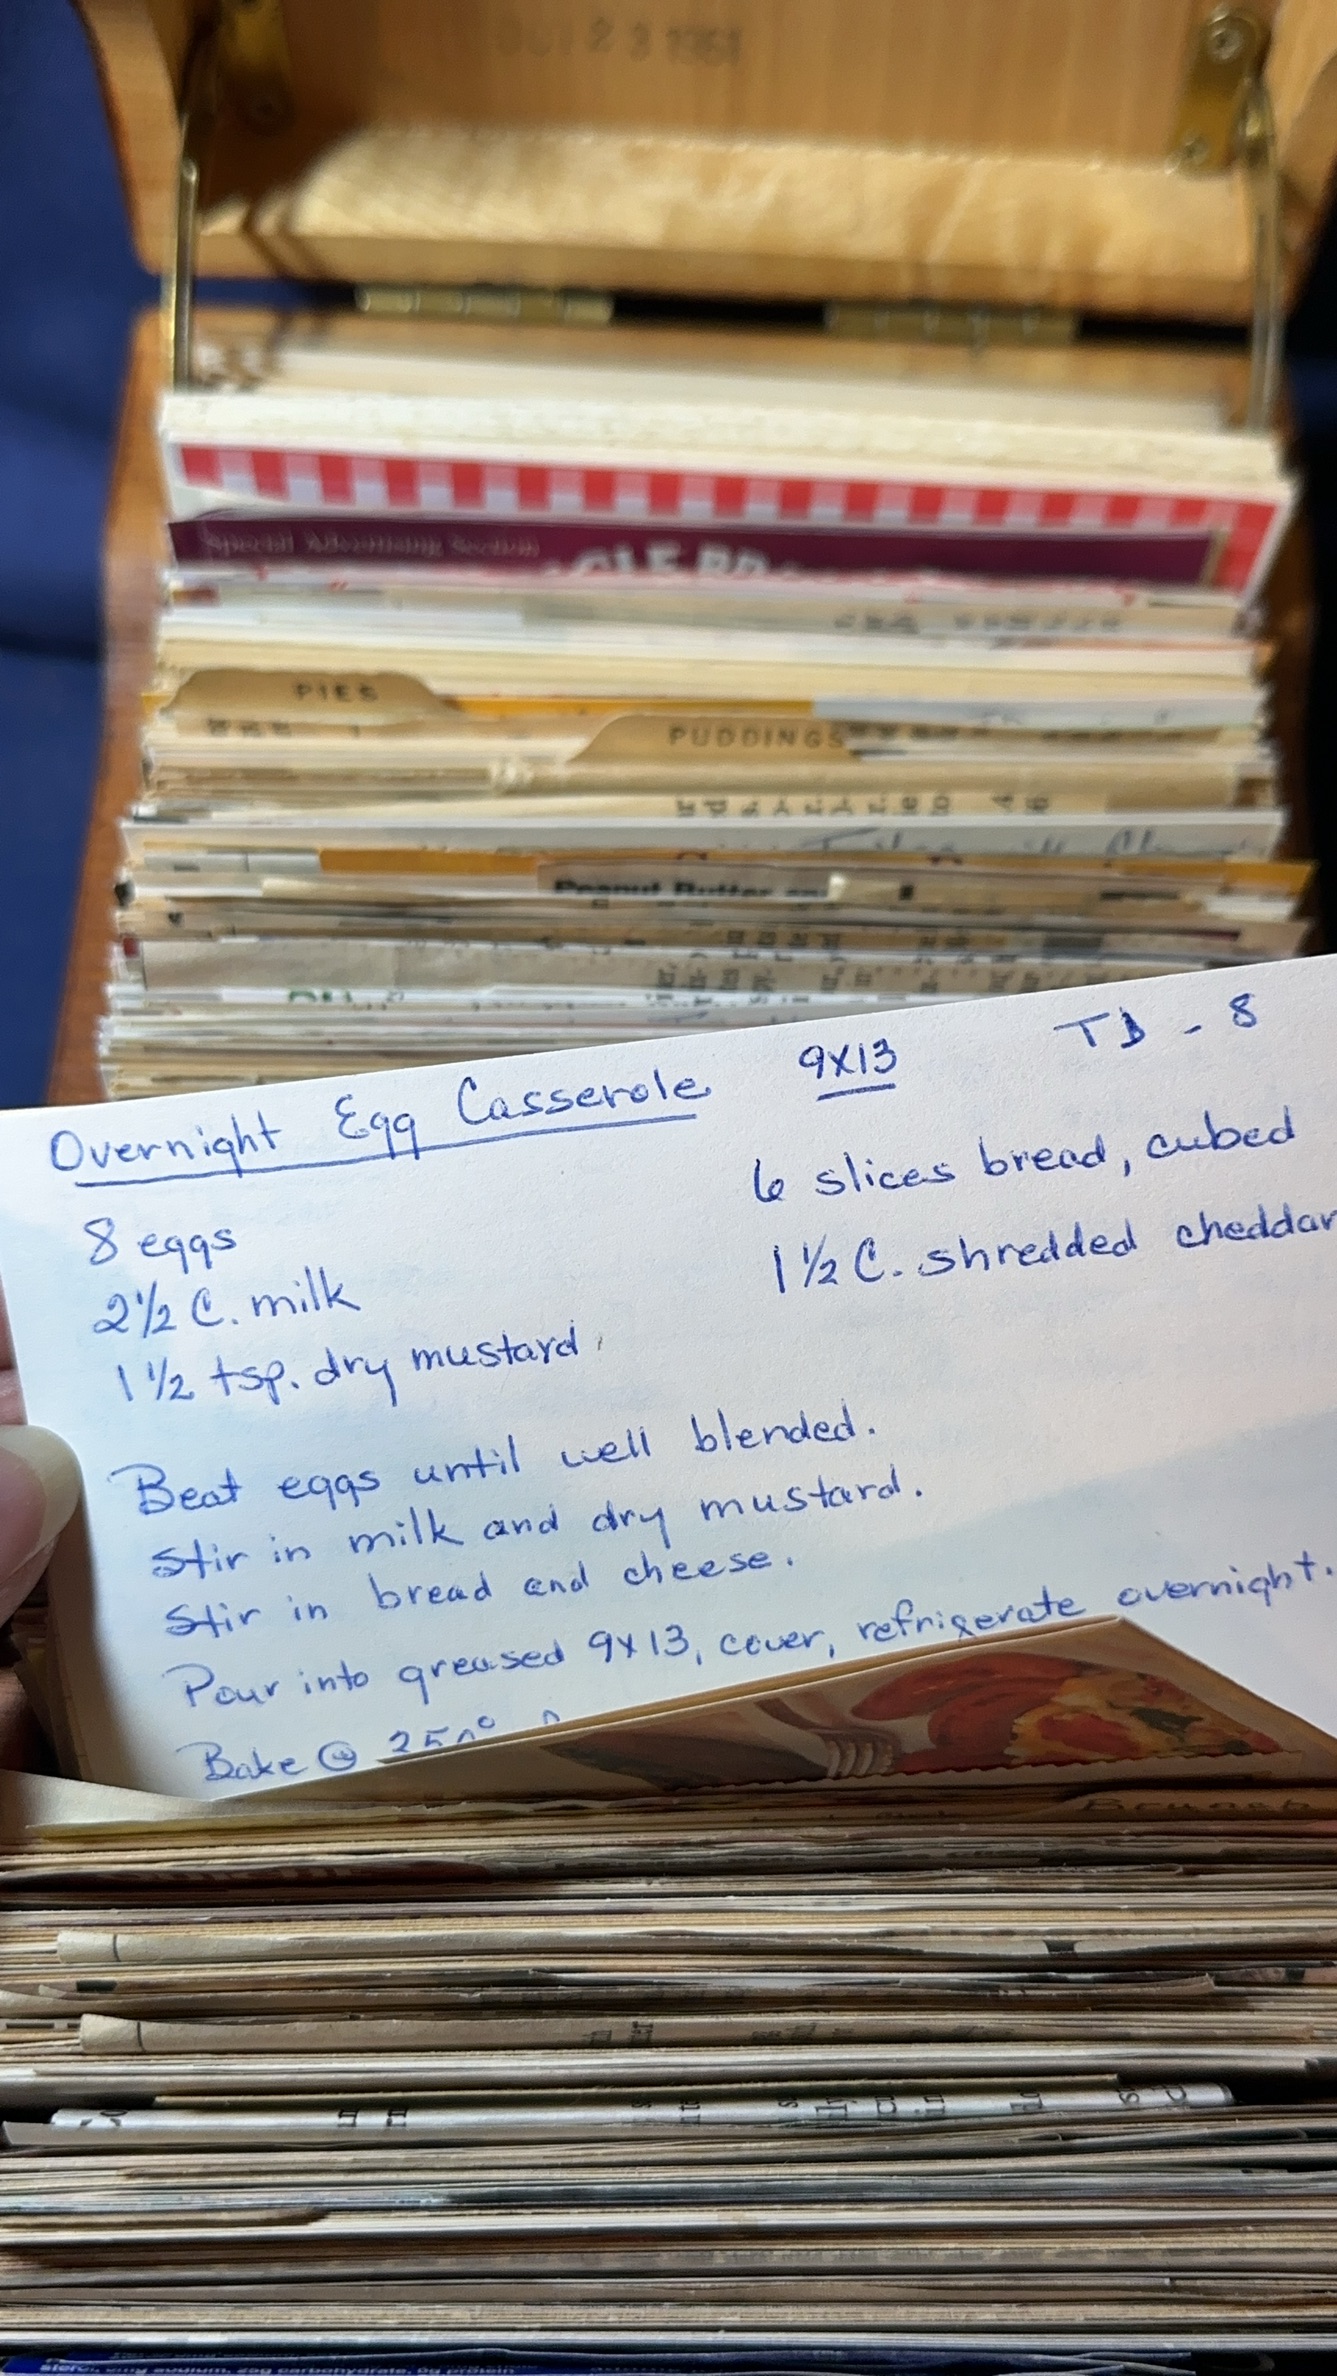 Special Advertising Section
PIES
PUDDINGS
Peanut Butter
Overnight Egg Casserole 9x13 TB - 8
8 eggs 6 slices bread, cubed
2 1/2 C. milk 1 1/2 C. shredded cheddar
1 1/2 tsp. dry mustard
Beat eggs until well blended.
Stir in milk and dry mustard.
Stir in bread and cheese.
Pour into greased 9x13, cover, refrigerate overnight.
Bake @ 350°
Brunch